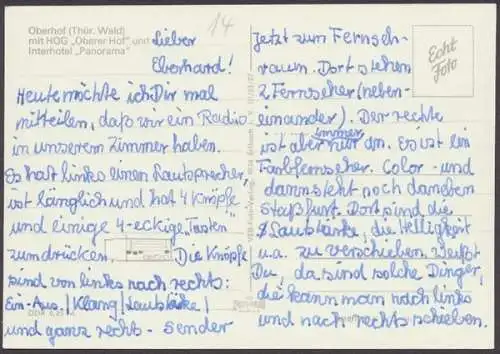 Oberhof (Thür. Wald)
mit HOG „Oberer Hof" und
Interhotel „Panorama"
14
Lieber
Eberhard!
Heute möchte ich Dir mal
mitteilen, daß wir ein Radio
in unserem Zimmer haben.
Es hat links einen Lautsprecher,
ist länglich und hat 4 Knöpfe
und einige 4-eckige „Tasten"
zum drücken. Die Knöpfe
sind von links nach rechts:
Ein-Aus/Klang/Lautstärke/
und ganz rechts - Sender
Jetzt zum Fernseh-
raum. Dort stehen
2 Fernseher (neben-
einander). Der rechte
immer
ist aber nur an. Es ist ein
Farbfernseher. Color - und
dann steht noch daneben
Staßfurt. Dort sind die
Lautstärke, die Helligkeit
u.a. zu verschieben. Weißt
Du, da sind solche Dinger,
die kann man nach links
und nach rechts schieben.
Echt
Foto